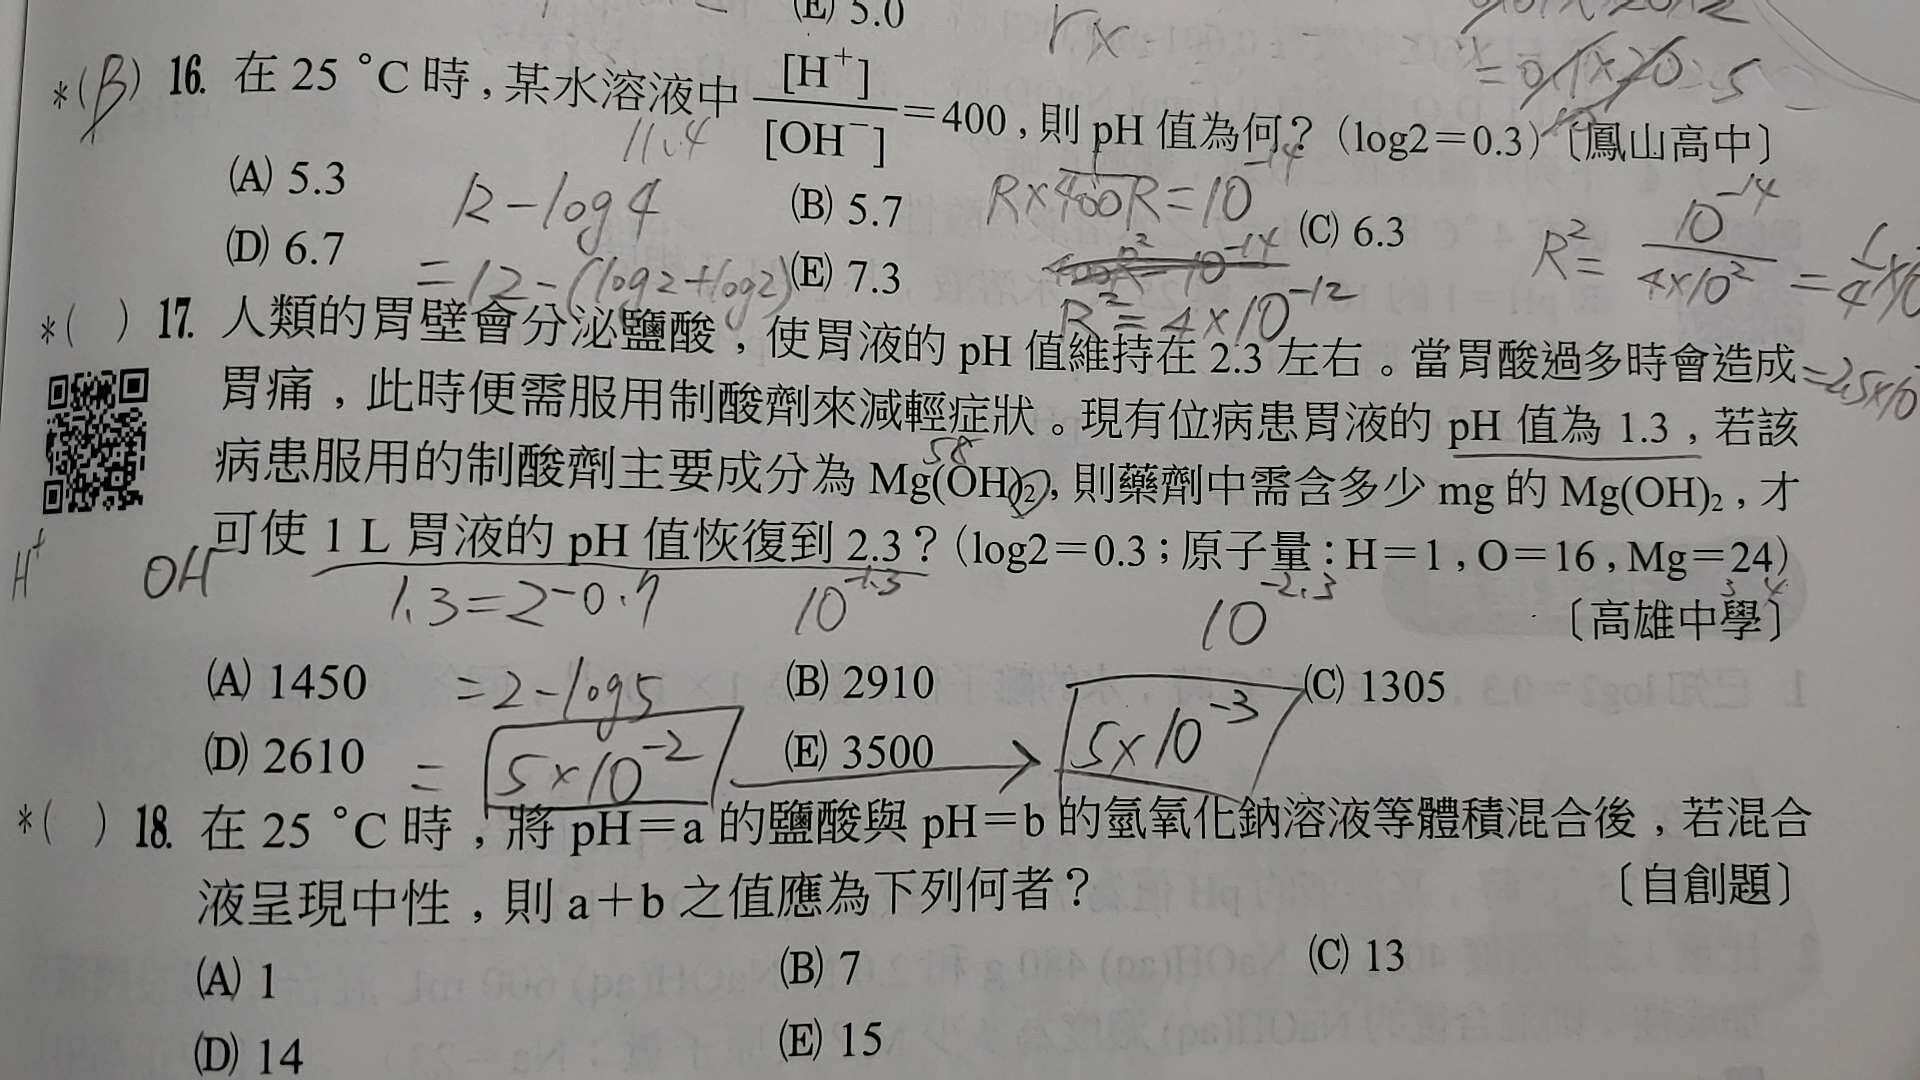 (E) 5.0
rx
= 0.1×20
*(B) 16. 在 25 °C 時，某水溶液中 [H⁺]/[OH⁻] = 400，則 pH 值為何？(log2＝0.3)〔鳳山高中〕
11.4
(A) 5.3 (B) 5.7 (C) 6.3
12-log4
R×400R=10⁻¹⁴
(D) 6.7 (E) 7.3
=12-(log2+log2)
R²=4×10⁻¹²
R²= 10⁻¹⁴/4×10² = 1/4×
=2.5×10
*( ) 17. 人類的胃壁會分泌鹽酸，使胃液的 pH 值維持在 2.3 左右。當胃酸過多時會造成
胃痛，此時便需服用制酸劑來減輕症狀。現有位病患胃液的 pH 值為 1.3，若該
58
病患服用的制酸劑主要成分為 Mg(OH)₂，則藥劑中需含多少 mg 的 Mg(OH)₂，才
可使 1 L 胃液的 pH 值恢復到 2.3？(log2＝0.3；原子量：H＝1，O＝16，Mg＝24)
H⁺ OH
1.3=2-0.7 10⁻¹·³ 10⁻²·³
〔高雄中學〕
(A) 1450 (B) 2910 (C) 1305
=2-log5
(D) 2610 (E) 3500
= 5×10⁻² → 5×10⁻³
*( ) 18. 在 25 °C 時，將 pH＝a 的鹽酸與 pH＝b 的氫氧化鈉溶液等體積混合後，若混合
液呈現中性，則 a＋b 之值應為下列何者？ 〔自創題〕
(A) 1 (B) 7 (C) 13
(D) 14 (E) 15